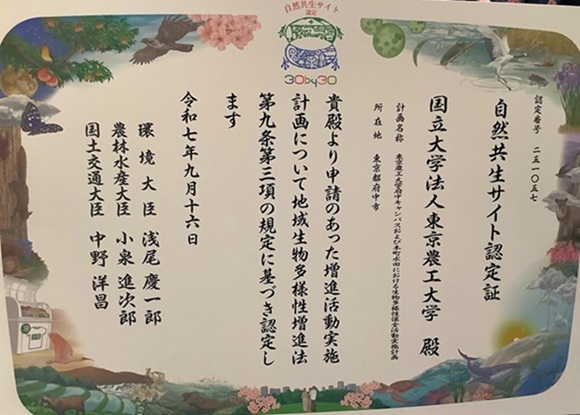 自然共生サイト
認定
30by30
認定番号 二五一〇五七
自然共生サイト認定証
国立大学法人東京農工大学 殿
計画名称 東京農工大学府中キャンパスおよび本町水田における生物多様性保全活動実施計画
所在地 東京都府中市
貴殿より申請のあった増進活動実施
計画について地域生物多様性増進法
第九条第三項の規定に基づき認定し
ます
令和七年九月十六日
環境大臣 浅尾 慶一郎
農林水産大臣 小泉 進次郎
国土交通大臣 中野 洋昌